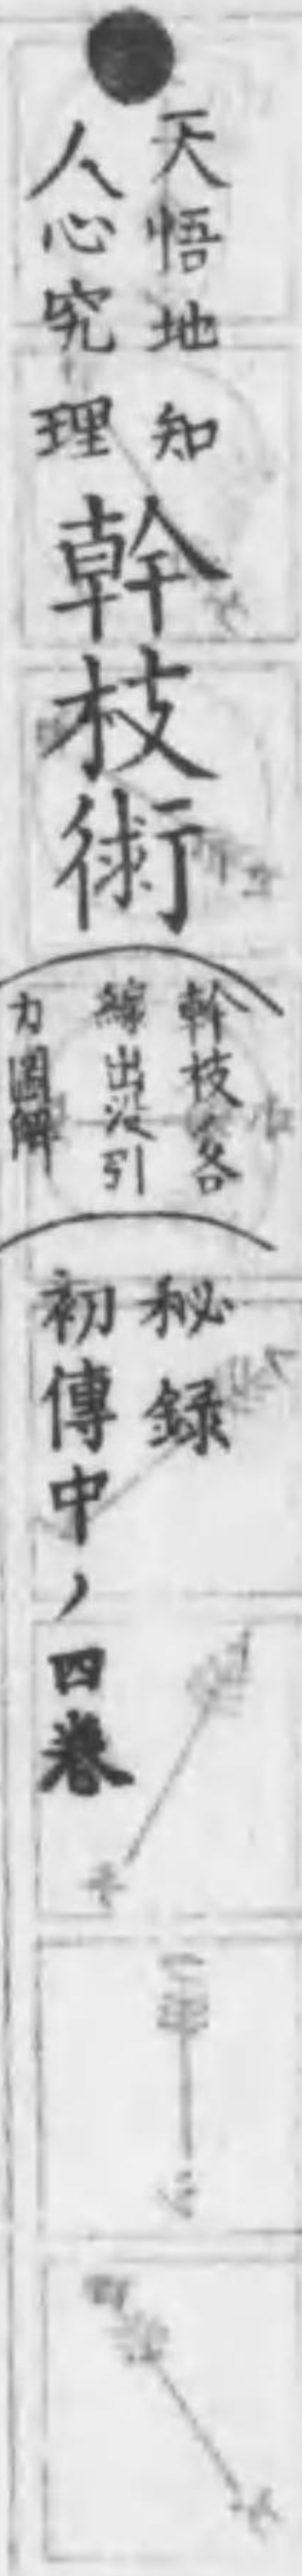 天悟地知
人心究理
幹枝術
幹枝各
線出没引
力圖解
秘録
初傳中ノ四巻